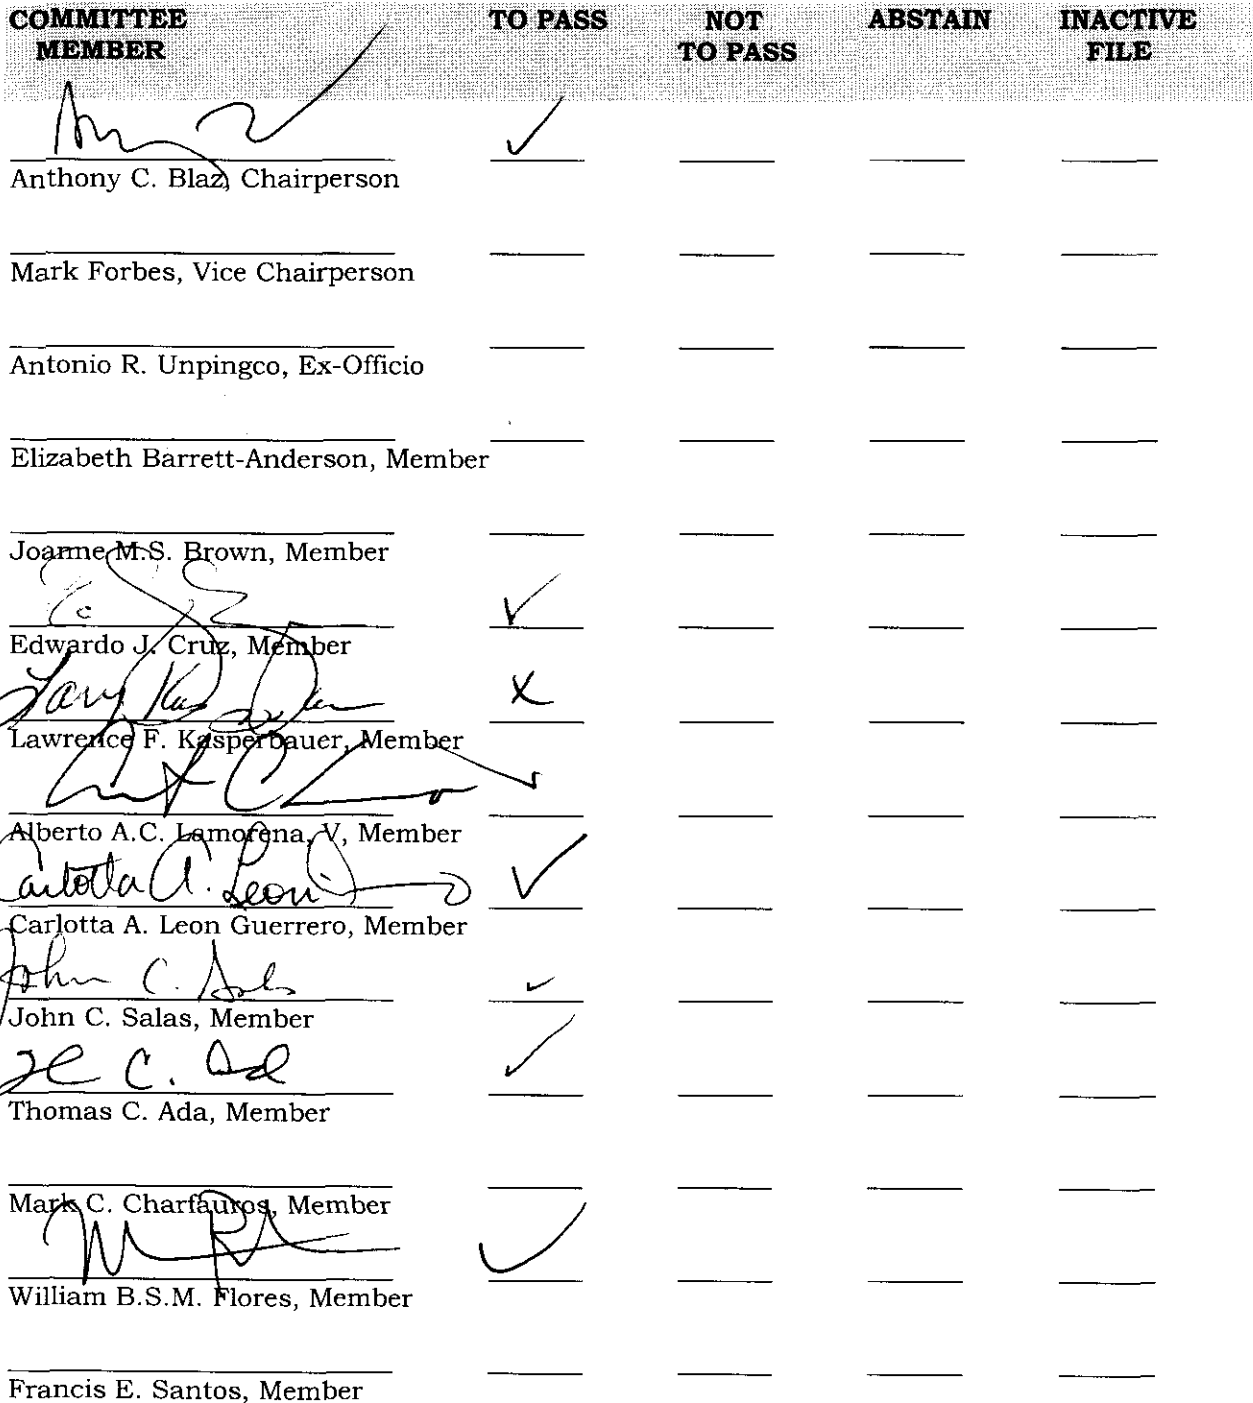 COMMITTEE MEMBER TO PASS NOT TO PASS ABSTAIN INACTIVE FILE
✓
Anthony C. Blaz, Chairperson
Mark Forbes, Vice Chairperson
Antonio R. Unpingco, Ex-Officio
Elizabeth Barrett-Anderson, Member
Joanne M.S. Brown, Member
✓
Edwardo J. Cruz, Member
X
Lawrence F. Kasperbauer, Member
✓
Alberto A.C. Lamorena, V, Member
Carlotta A. Leon ✓
Carlotta A. Leon Guerrero, Member
John C. Salas ✓
John C. Salas, Member
✓
Thomas C. Ada, Member
Mark C. Charfauros, Member
✓
William B.S.M. Flores, Member
Francis E. Santos, Member